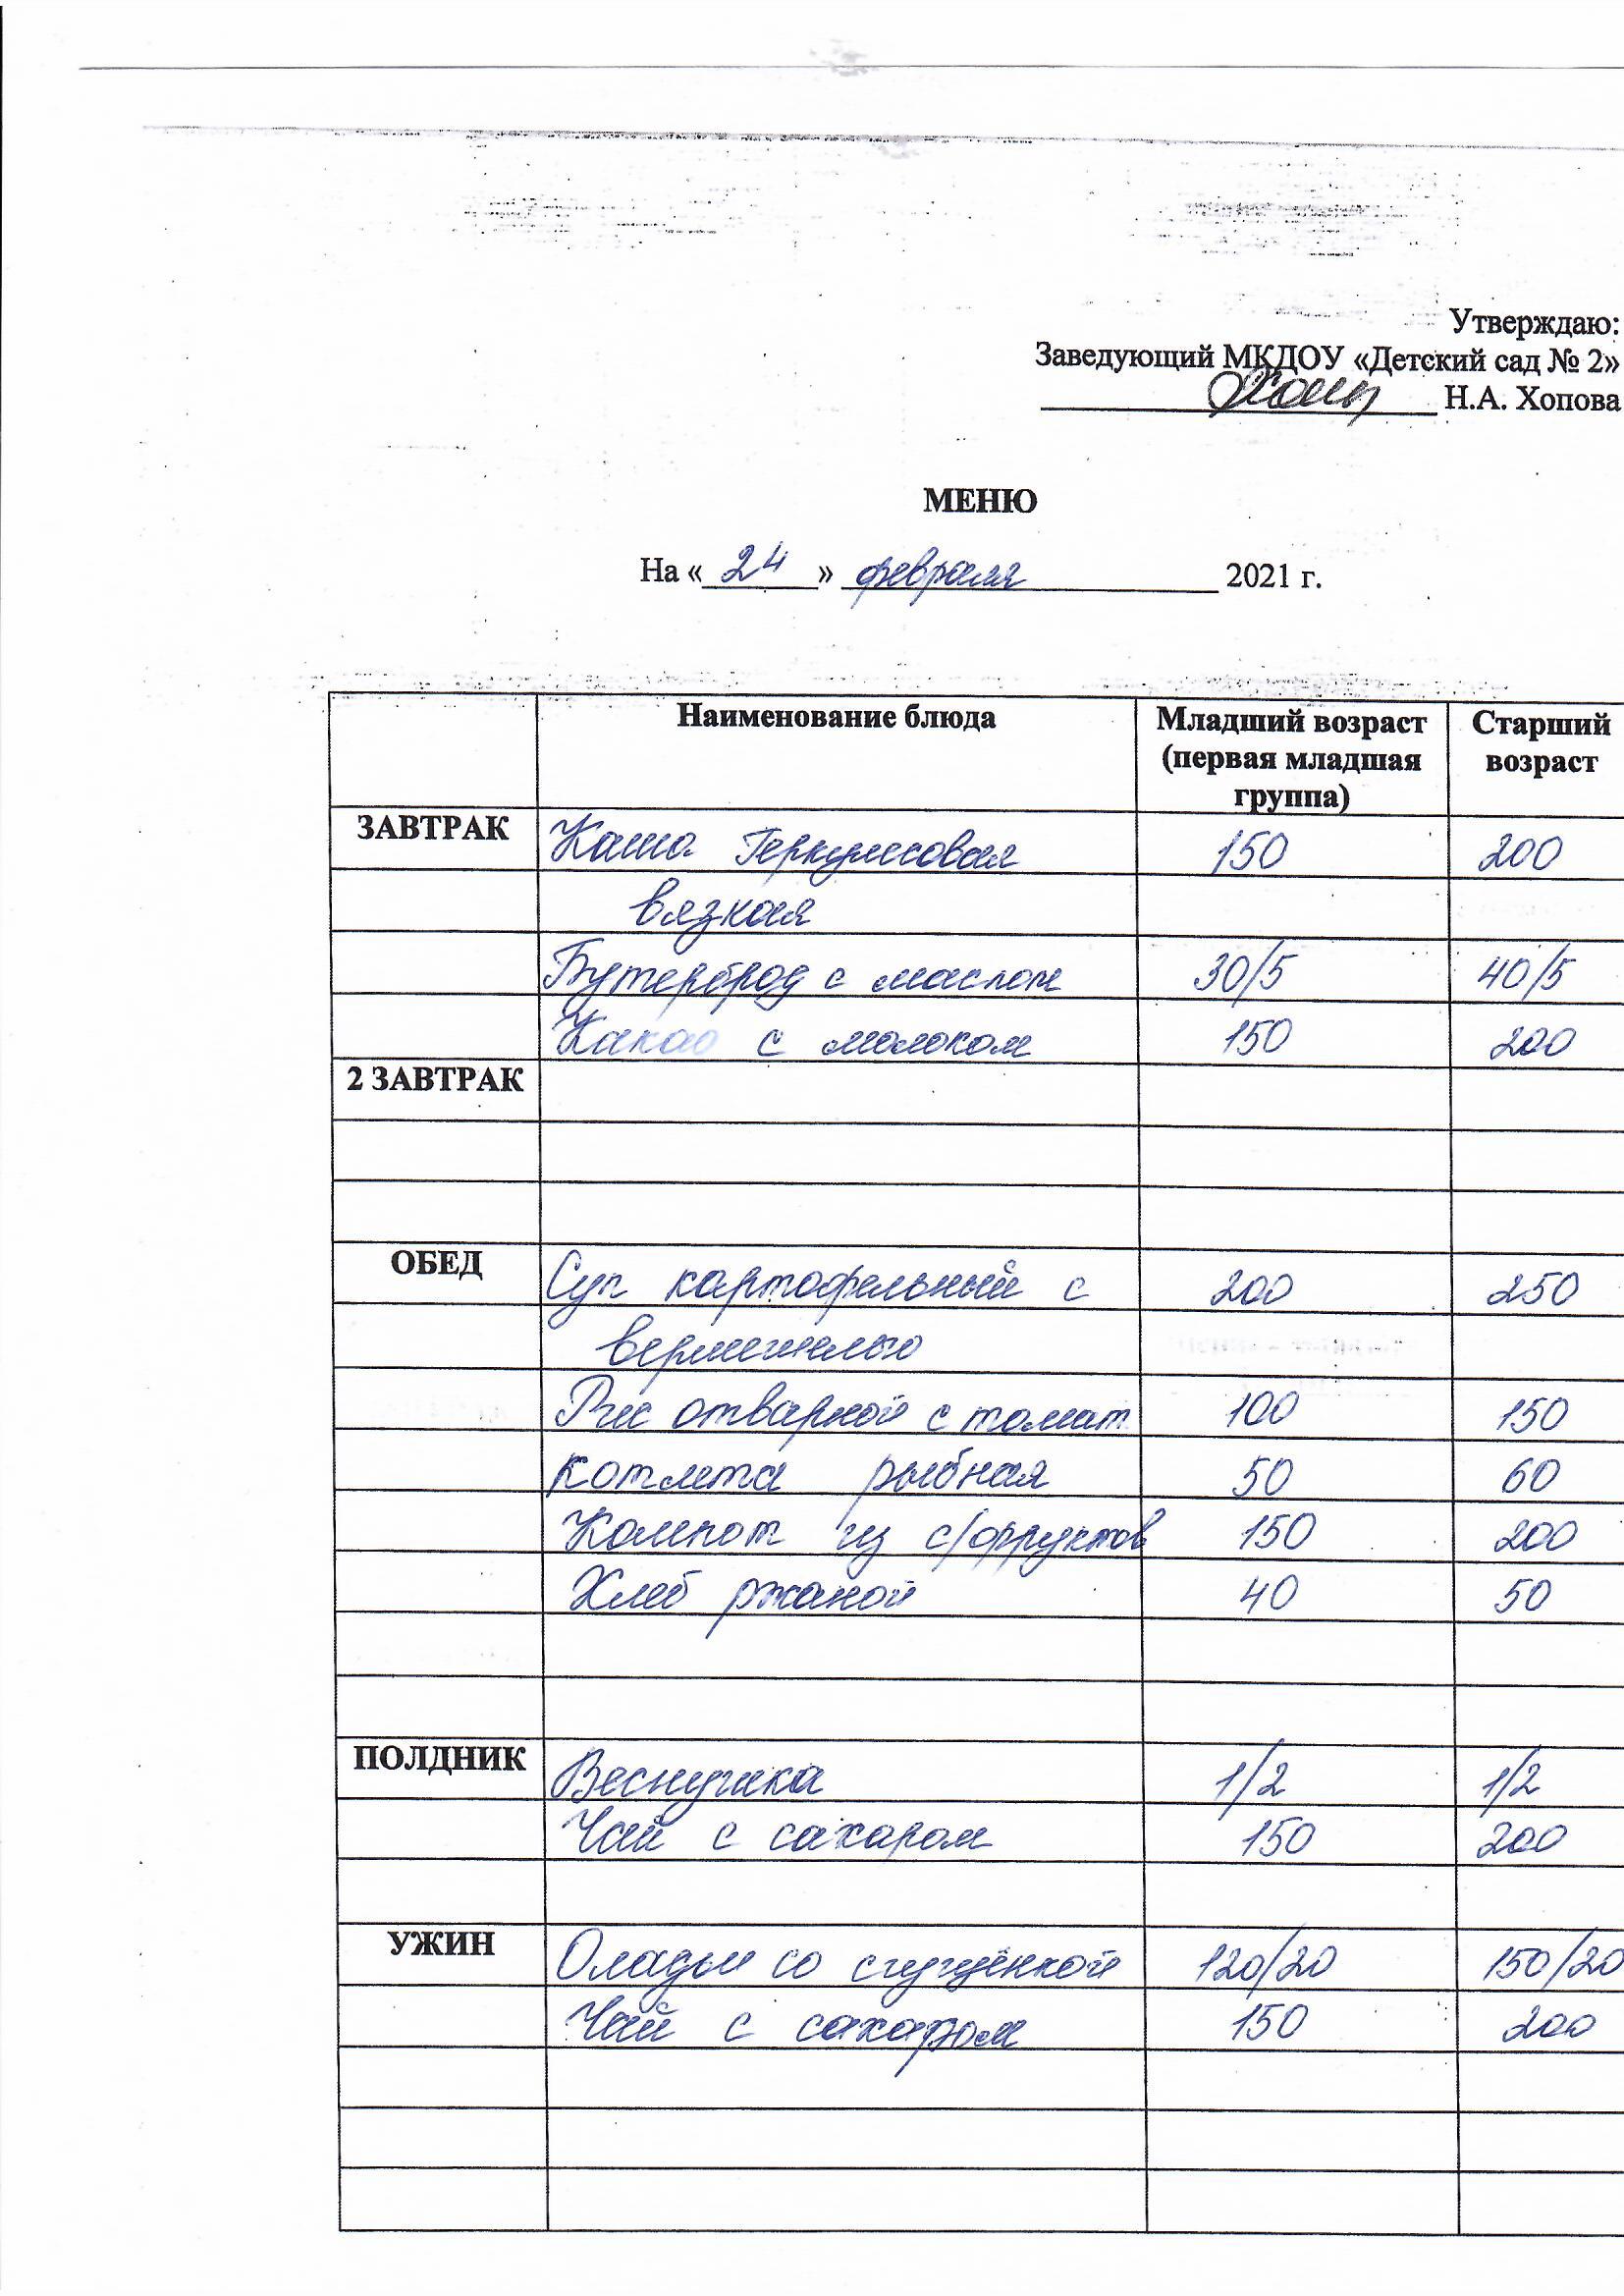 Утверждаю:
Заведующий МКДОУ «Детский сад № 2»
Н.А. Хопова
МЕНЮ
На «24» февраля 2021 г.
Наименование блюда Младший возраст (первая младшая группа) Старший возраст
ЗАВТРАК Каша Геркулесовая 150 200
вязкая
Бутерброд с маслом 30/5 40/5
Какао с молоком 150 200
2 ЗАВТРАК
ОБЕД Суп картофельный с 200 250
вермишелью
Рис отварной с томат. 100 150
котлета рыбная 50 60
Компот из с/фруктов 150 200
Хлеб ржаной 40 50
ПОЛДНИК Веснушка 1/2 1/2
Чай с сахаром 150 200
УЖИН Оладьи со сгущёнкой 120/20 150/20
Чай с сахаром 150 200